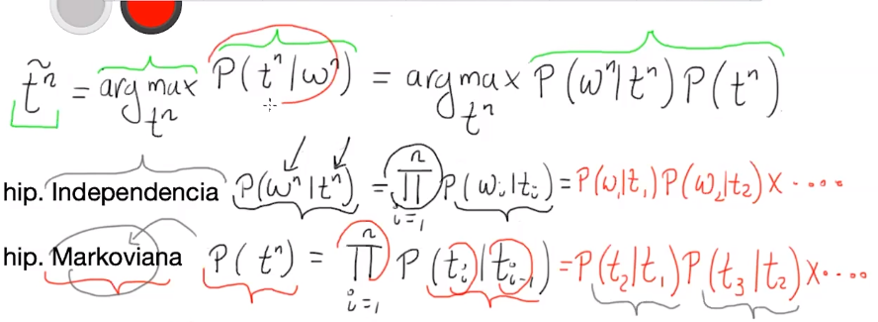 t̃ⁿ = arg max_{tⁿ} P(tⁿ|wⁿ) = arg max_{tⁿ} P(wⁿ|tⁿ) P(tⁿ)
hip. Independencia P(wⁿ|tⁿ) = ∏_{i=1}^{n} P(wᵢ|tᵢ) = P(w₁|t₁) P(w₂|t₂) x ....
hip. Markoviana P(tⁿ) = ∏_{i=1}^{n} P(tᵢ|tᵢ₋₁) = P(t₂|t₁) P(t₃|t₂) x ....